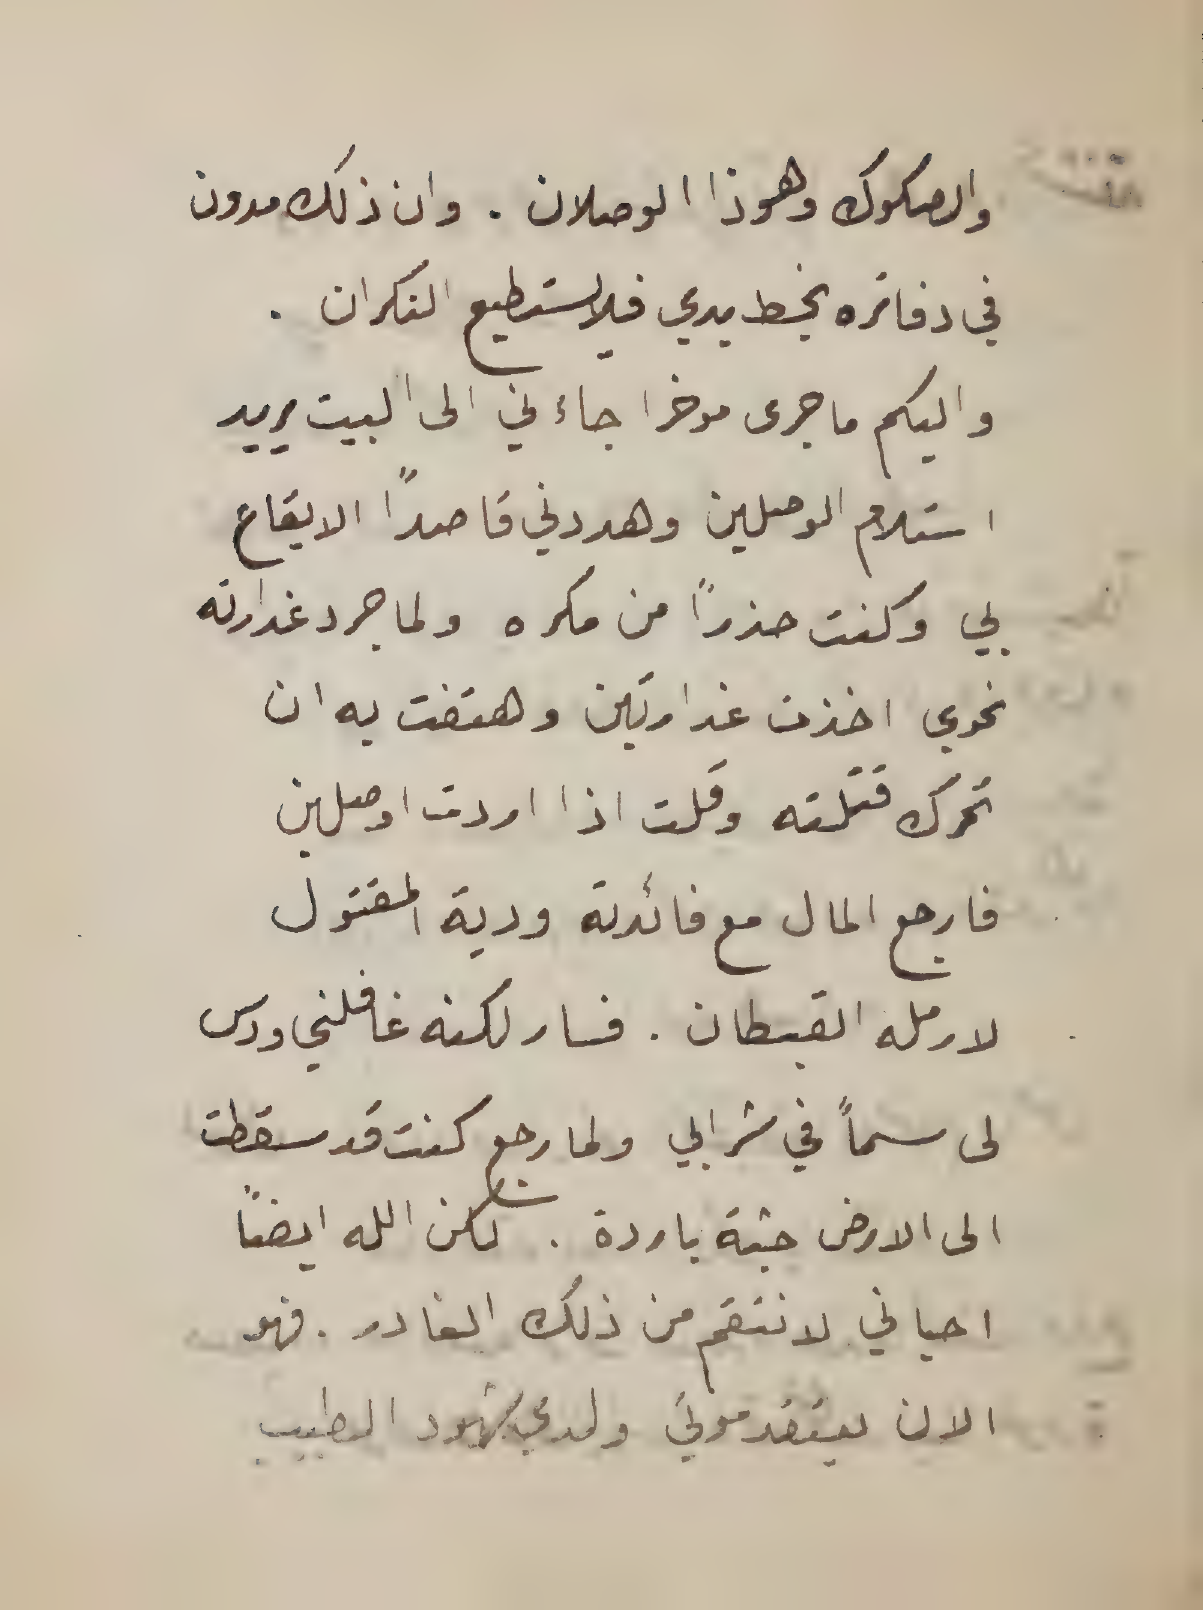 والصكوك وهوذا الوصلان . وان ذلك مدون
في دفاتره بخط يدي فلا يستطيع النكران .
واليكم ما جرى موخرا جاءني الى البيت يريد
استلام الوصلين وهددني قاصداً الايقاع
بي وكنت حذراً من مكره ولما جرد غدارته
نحوي اخذت غدارتين وهتفت به ان
تحرك قتلته وقلت اذا اردت اوصلين
فارجع المال مع فائدته ودية المقتول
لارمله القبطان . فسار لكنه غافلني ودس
لى سماً في شرابي ولما رجع كنت قد سقطت
الى الارض جثة باردة . لكن الله ايضاً
احياني لانتقم من ذلك الغادر . فهو
الان يعتقد موتي ولدي شهود الطبيب